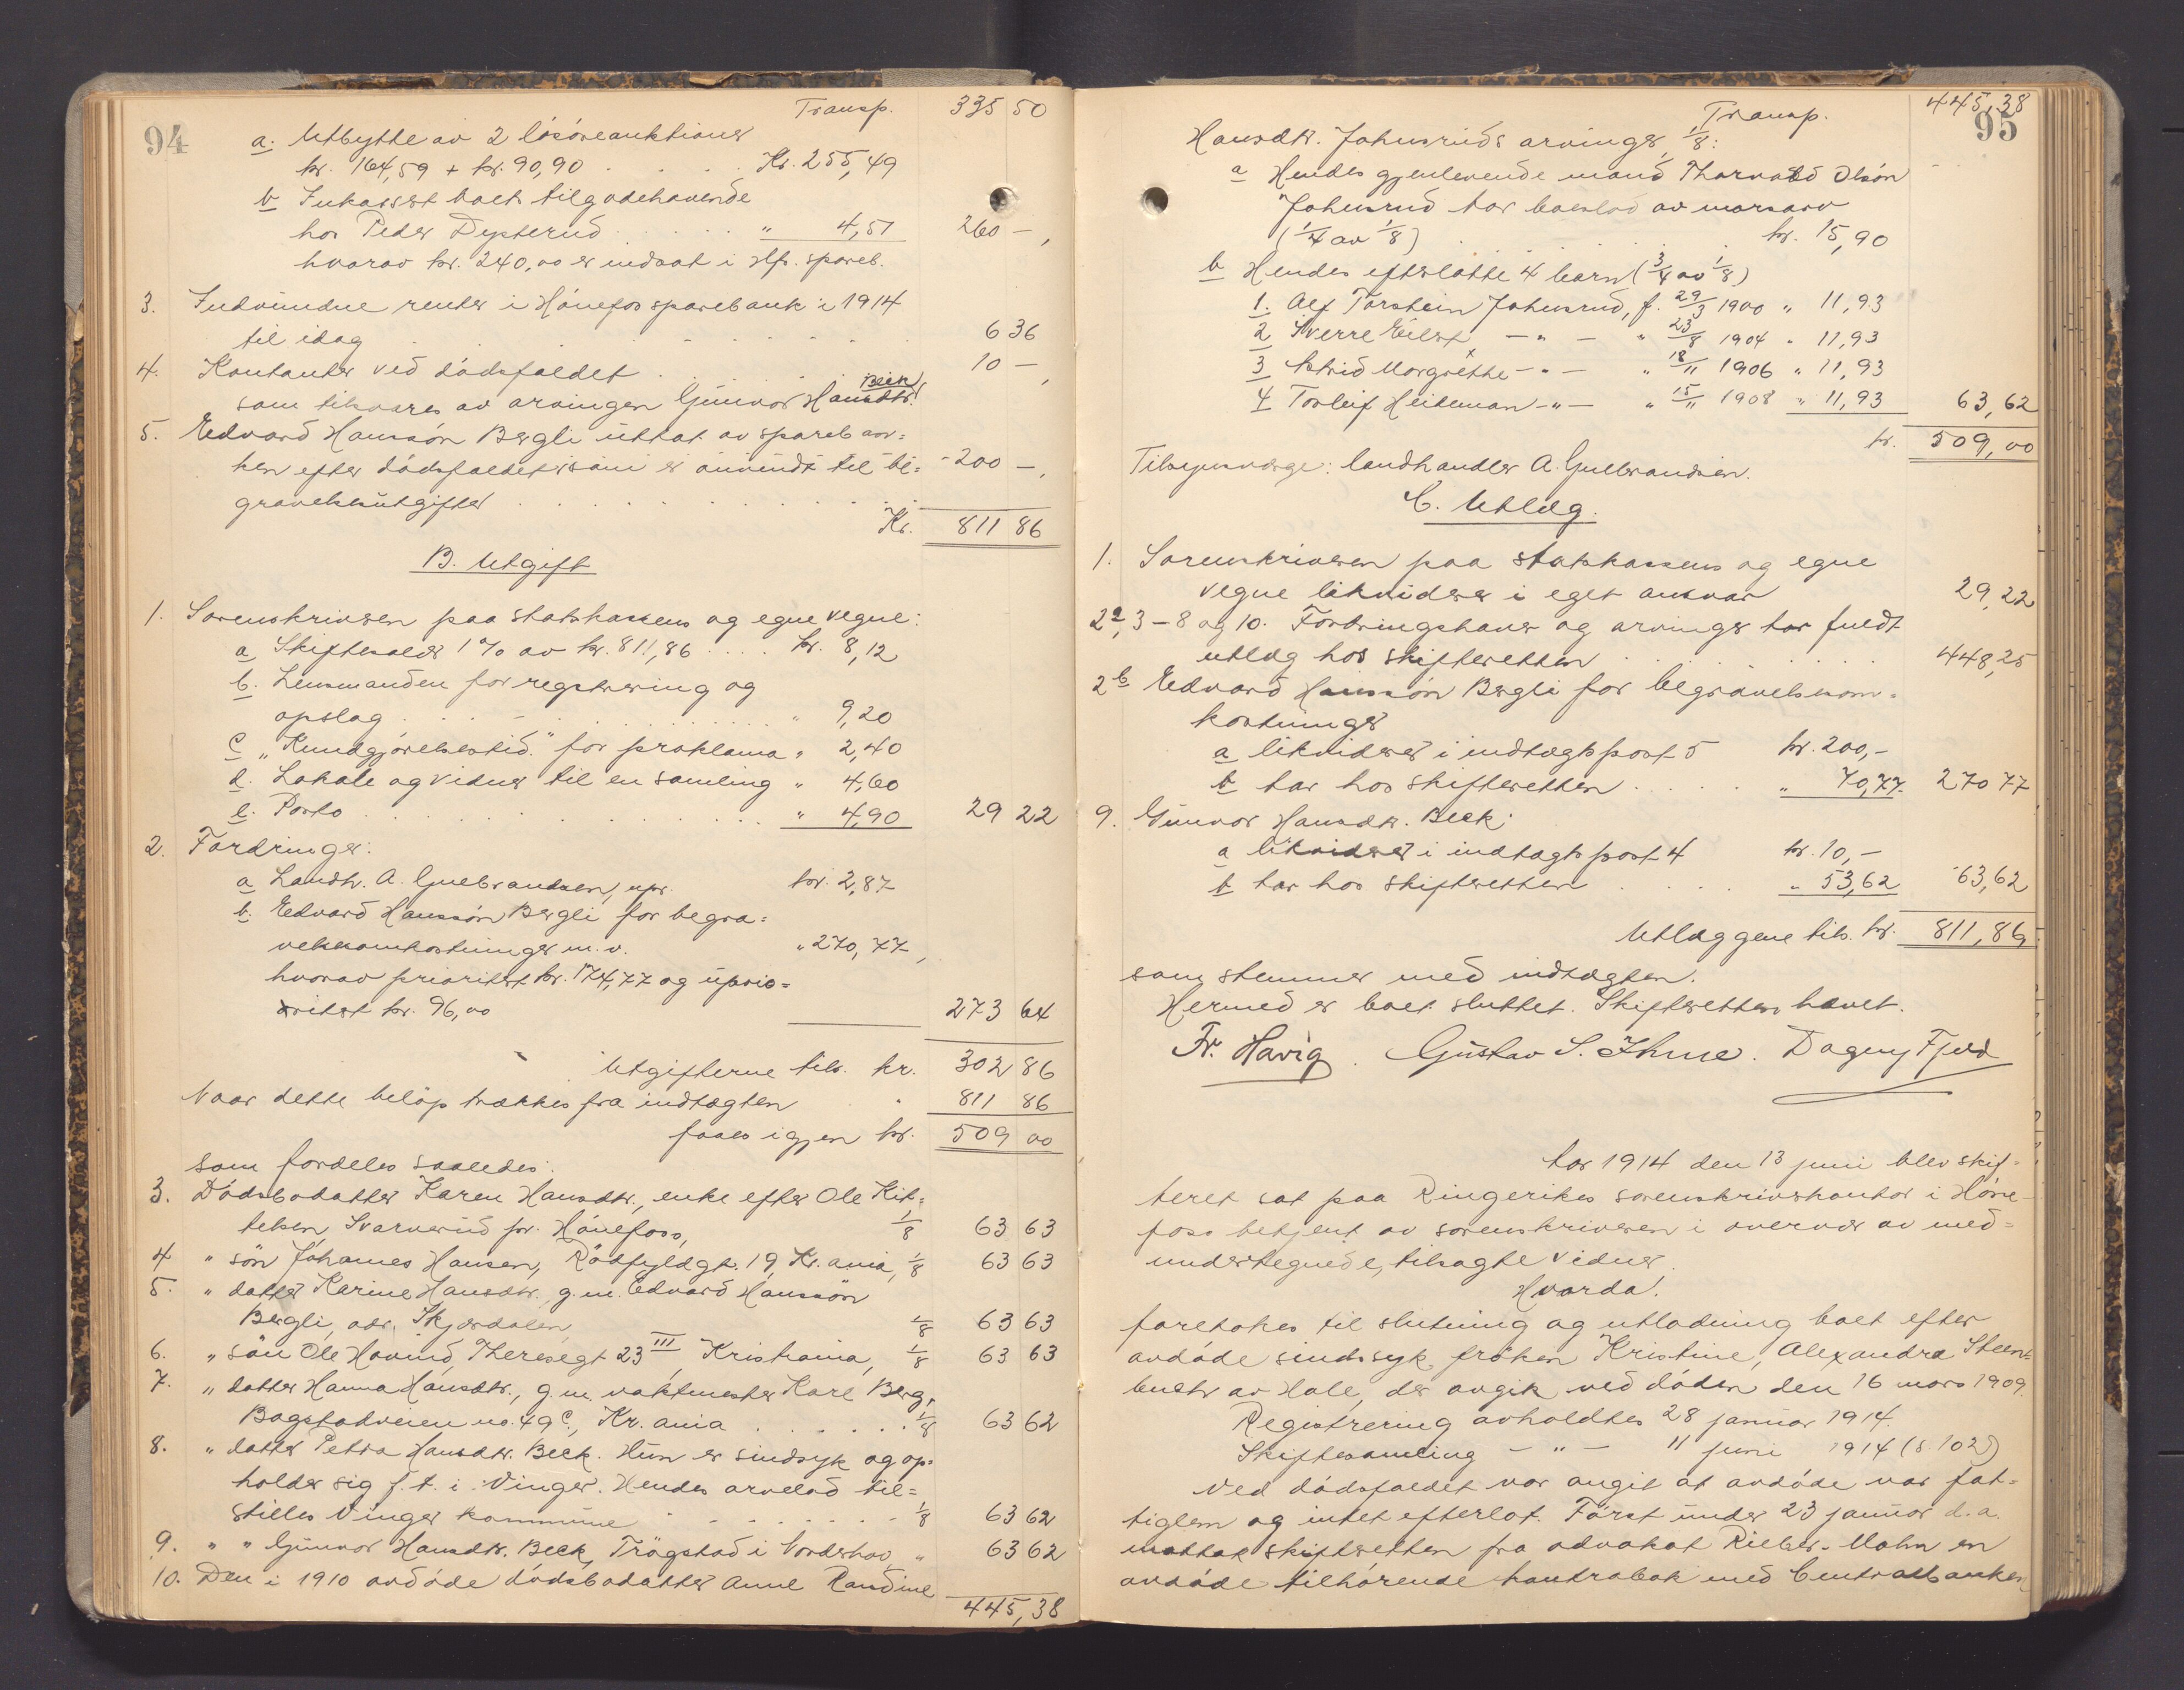 94
Transp. 335 50
a. Utbytte av 2 løsøreauktioner
kr. 164,59 + kr. 90,90 . . . . Kr. 255,49
b Inkassert boets tilgodehavende
hos Peder Dysterud . . . . . " 4,51 260 —,
hvorav kr. 240,00 er indsat i Hfs. spareb.
3. Indvundne renter i Hønefos sparebank i 1914
til idag . . . . . . . . . 6 36
4. Kontanter ved dødsfaldet . . . . . . 10 —,
som tilsvares av arvingen Gunvor Hansdtr. Beck
5. Edvard Hanssøn Bergli uttat av spareban=
ken efter dødsfaldet som er anvendt til be= 200 —,
gravelsesutgifter . . . . . . . . .
Kr. 811 86
B. Utgift
1. Sorenskriveren paa statskassens og egne vegne:
a Skiftesalær 1 % av kr. 811,86 . . . . kr. 8,12
b. Lensmanden for registrering og
opslag . . . . . . . . . . " 9,20
c "Kundgjørelsestid." for proklama " 2,40
d. Lokale og vidner til en samling " 4,60
e. Porto . . . . . . . . . . " 4,90 29 22
2. Fordringer:
a Landh. A. Gulbrandsen, upr. kr. 2,87
b. Edvard Hanssøn Bergli for begra=
velsesomkostninger m. v. " 270,77,
hvorav prioritet kr. 174,77 og uprio=
ritet kr. 96,00 273 64
Utgifterne tils. kr. 302 86
Naar dette beløp trækkes fra indtægten " 811 86
faaes igjen kr. 509 00
som fordeles saaledes:
3. Dødsbodatter Karen Hansdtr., enke efter Ole Kit=
telsen, Svarverud pr. Hønefoss, 1/8 63 63
4 " søn Johannes Hansen, Rødfyldgt. 19, Kr.ania, 1/8 63 63
5. " datter Karine Hansdtr., g. m. Edvard Hanssøn
Bergli, adr. Skjærdalen 1/8 63 63
6. " søn Ole Hovind, Theresegt 23 III, Kristiania, 1/8 63 63
7. " datter Hanna Hansdtr., g. m. vaktmester Kare Berg,
Bogstadveien no. 49 c, Kr.ania . . . . . . 1/8 63 62
8. " datter Petra Hansdtr. Beck. Hun er sindsyk og op=
holder sig f. t. i Vinger. Hendes arvelod til=
stilles Vinger kommune . . . . . . . 1/8 63 62
9. " " Gunvor Hansdtr. Beck, Trøgstad i Norderhov " 63 62
10. Den i 1910 avdøde dødsbodatter Anne Randine
445,38
95
Transp. 445,38
Hansdtr. Johnsruds arvinger, 1/8:
a Hendes gjenlevende mand Thorvald Olsøn
Johnsrud tar boeslod av morsarv
(1/4 av 1/8) . . . . . . . kr. 15,90
b Hendes efterlatte 4 barn (3/4 av 1/8)
1. Alf Torstein Johnsrud, f. 29/3 1900 " 11,93
2 Sverre Eilert — " — " 23/8 1904 " 11,93
3 Astrid Margrethe — " — " 18/11 1906 " 11,93
4 Torleif Heileman — " — " 15/11 1908 " 11,93 63,62
kr. 509,00
Tilsynsværge: landhandler A. Gulbrandsen.
C. Utlæg.
1. Sorenskriveren paa statskassens og egne
vegne likviderer i eget ansvar 29,22
2a, 3 – 8 og 10. Fordringshaver og arvinger har fuldt
utlæg hos skifteretten . . . . . . . 448,25
2b Edvard Hanssøn Bergli for begravelsesom=
kostninger
a likviderer i indtægtspost 5 kr. 200,–
b tar hos skifteretten . . . . " 70,77 270 77
9. Gunvor Hansdtr. Beck:
a likviderer i indtægtspost 4 kr. 10,–
b tar hos skifteretten . . . . " 53,62 63,62
Utlæggene tils. kr. 811,86
som stemmer med indtægten.
Hermed er boet sluttet. Skifteretten hævet.
Fr. Havig. Gustav S. Ihme. Dagny Fjeld
Aar 1914 den 13 juni blev skif=
teret sat paa Ringerikes sorenskriverkontor i Høne=
foss betjent av sorenskriveren i overvær av med=
undertegnede, tilsagte vidner.
Hvorda!
foretokes til slutning og utlodning boet efter
avdøde sindssyk frøken Kristine, Alexandra Steen=
buch av Hole, der avgik ved døden den 16 mars 1909.
Registrering avholdtes 28 januar 1914.
Skiftesamling — " — 11 juni 1914 (s. 102)
Ved dødsfaldet var angit at avdøde var fat=
tiglem og intet efterlot. Først under 23 januar d. a.
mottok skifteretten fra advokat Rieber-Mohn en
avdøde tilhørende kontrabok med Centralbanken